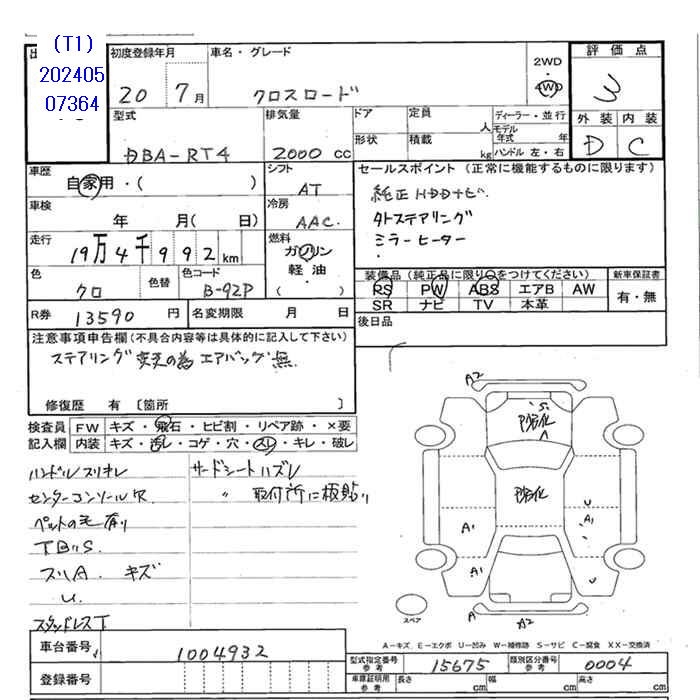 (T1)
202405
07364
初度登録年月
20 7月
車名・グレード
クロスロード
2WD
・
4WD
評価点
3
外装 内装
D C
型式
DBA-RT4
排気量
2000 cc
ドア
形状
定員
人
積載
kg
ディーラー・並行
モデル年式 年
ハンドル 左・右
車歴
自家用・( )
シフト
AT
セールスポイント (正常に機能するものに限ります)
純正HDDナビ.
タトステアリング
ミラーヒーター
車検
年 月( 日)
冷房
AAC.
走行
19万4千992km
燃料
ガソリン
軽油・
( )
色
クロ
色替
色コード
B-92P
装備品(純正品に限り○をつけてください)
RS PW ABS エアB AW
SR ナビ TV 本革
新車保証書
有・無
R券 13590 円
名変期限 月 日
後日品
注意事項申告欄(不具合内容等は具体的に記入して下さい)
ステアリング変天の為エアバッグ無.
修復歴 有 〔箇所 〕
検査員
記入欄
FW キズ・飛石・ヒビ割・リペア跡・×要
内装 キズ・汚レ・コゲ・穴・スレ・キレ・破レ
ハンドルスリキレ
センターコンソールワレ
ペットの毛有り
スリA. キズ
U.
スタッドレスT
サードシートハズレ
〃 取付所に板貼り
A2
防劣化
防劣化
A1
A1
U
A1
U
A1
A2
スペア
A-キズ、E-エクボ U-凹み W-補修跡 S-サビ C-腐食 XX-交換済
車台番号
1004932
登録番号
型式指定番号
参考
15675
類別区分番号
参考
0004
車庫証明用
参考
長さ cm
幅 cm
高さ cm